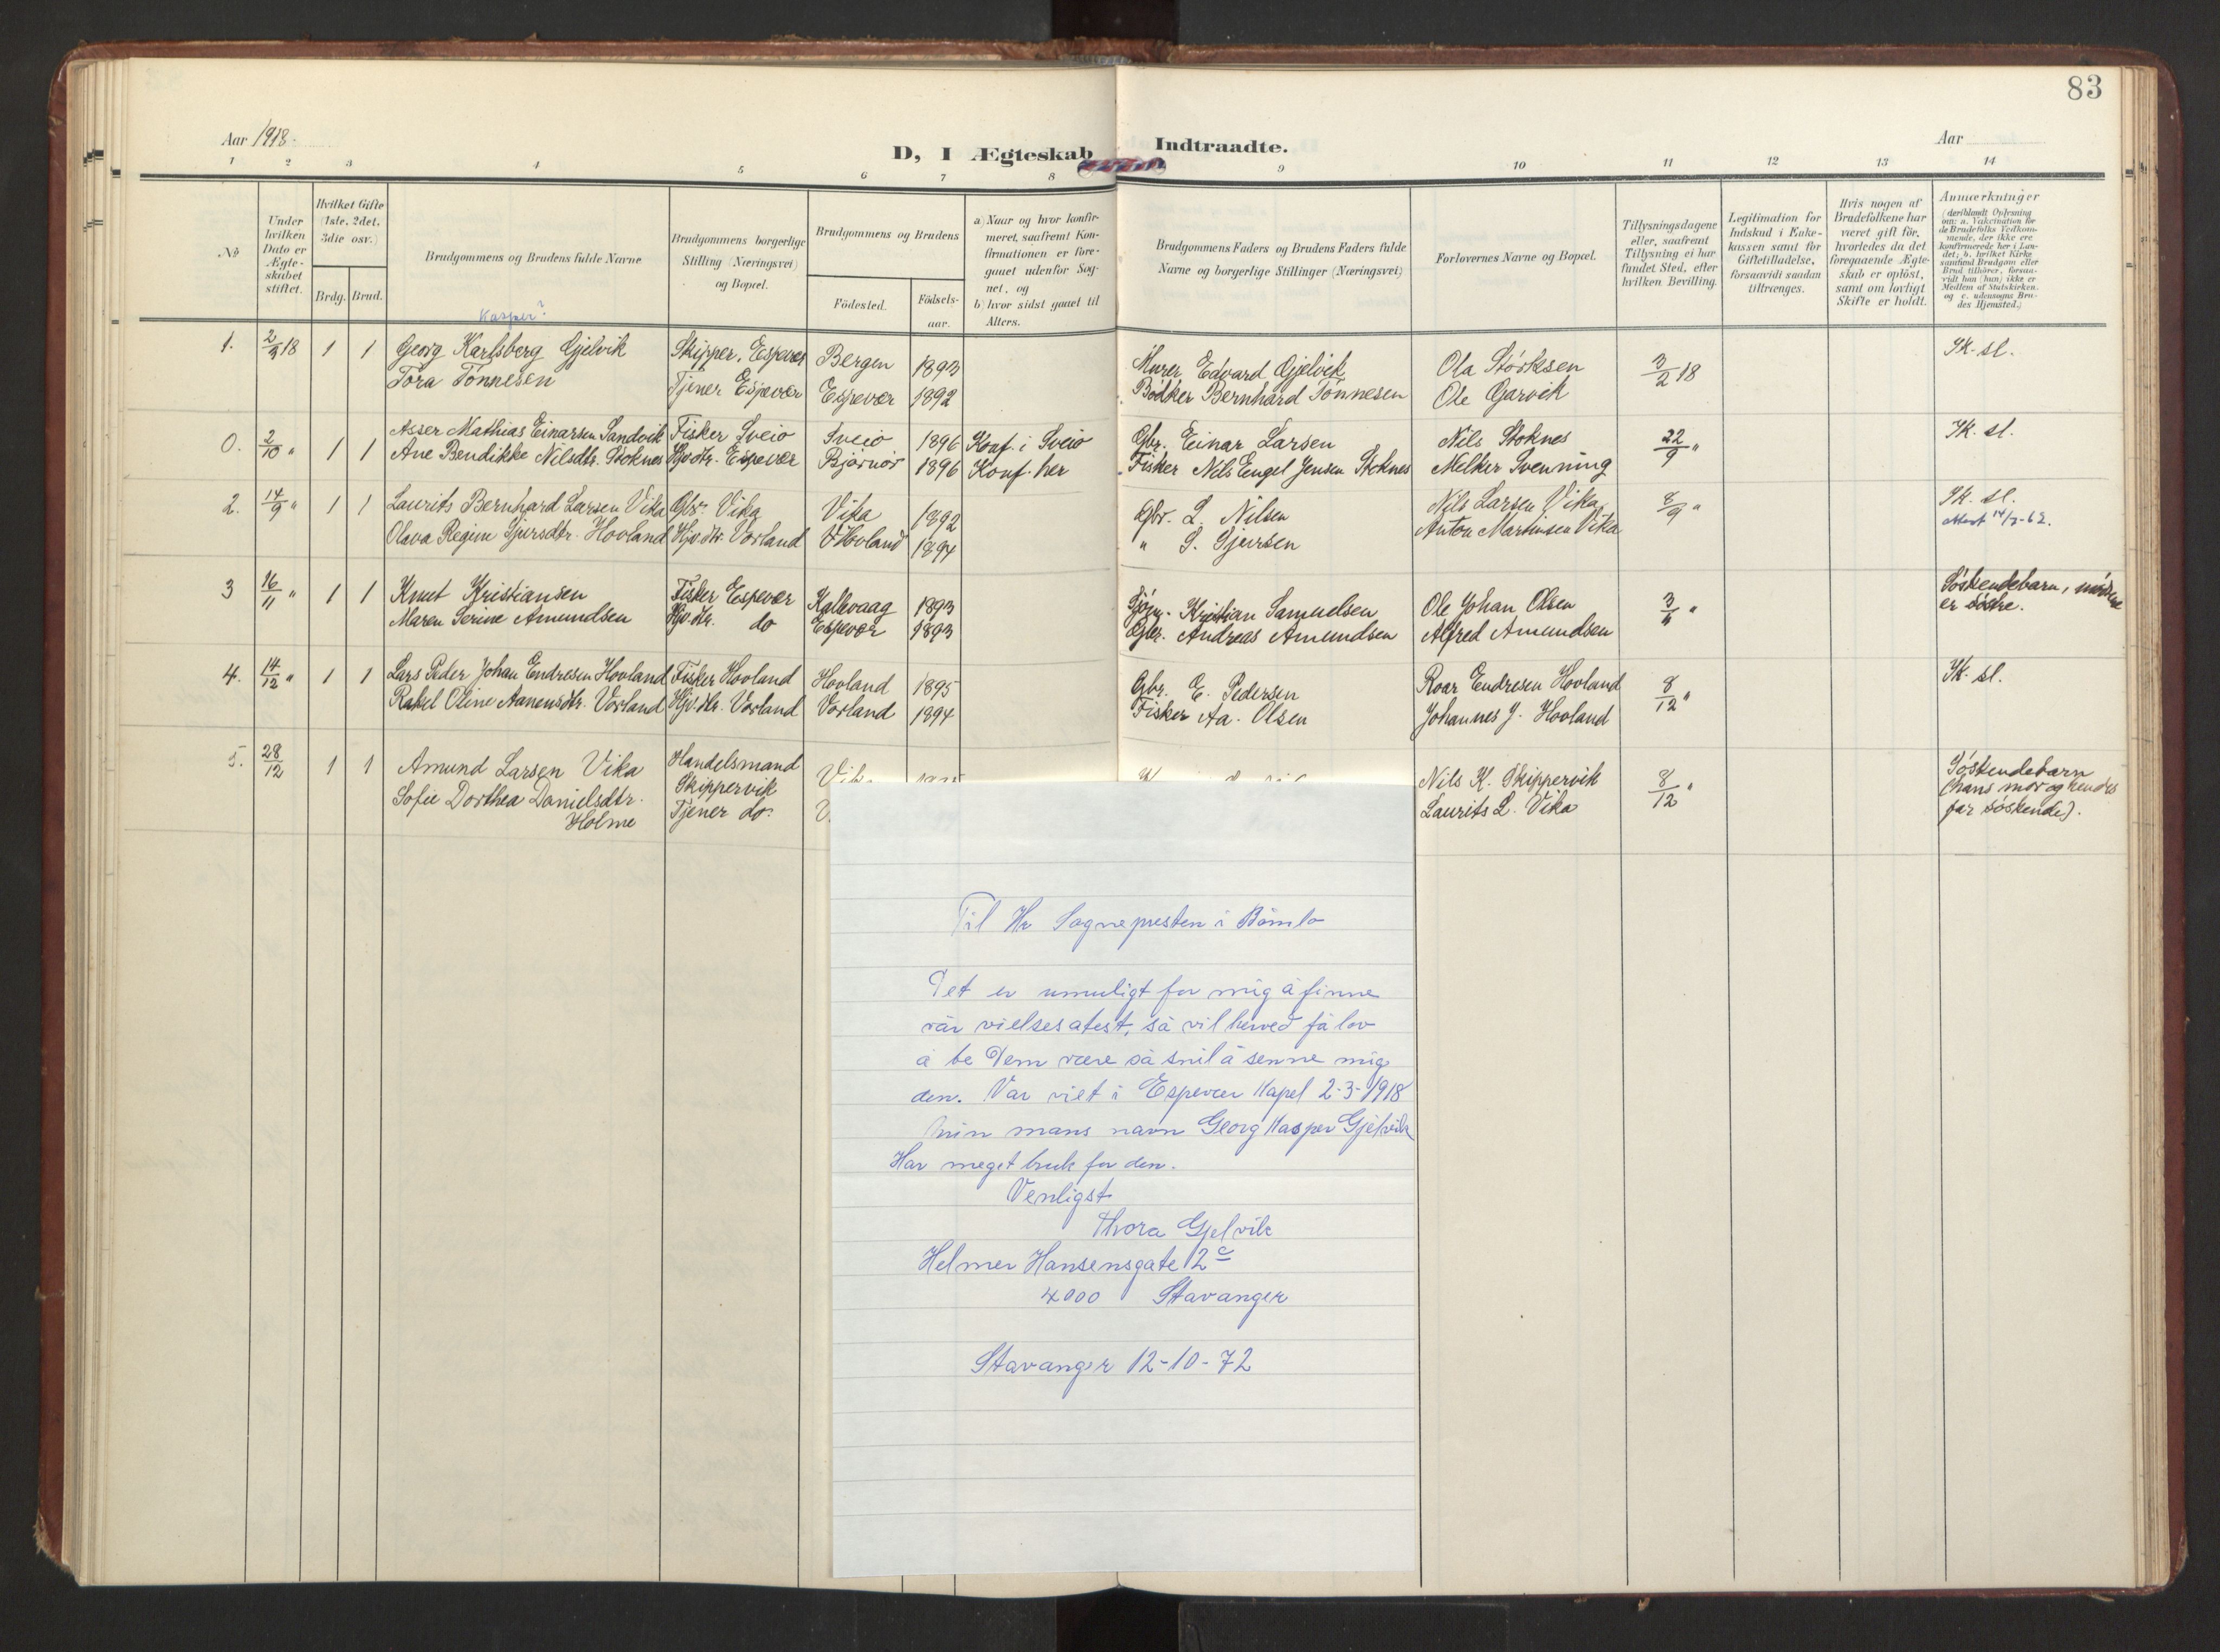 83
Aar 1918.
D, I Ægteskab Indtraadte.
Aar
1 2 3 4 5 6 7 8 9 10 11 12 13 14
No
Under hvilken Dato er Ægteskabet stiftet.
Hvilket Gifte (1ste, 2det, 3die osv.)
Brdg. Brud.
Brudgommens og Brudens fulde Navne
Brudgommens borgerlige Stilling (Næringsvei) og Bopæl.
Brudgommens og Brudens
Fødested.
Fødselsaar.
a) Naar og hvor konfirmeret, saafremt Konfirmationen er foregaaet udenfor Sognet, og
b) hvor sidst gaaet til Alters.
Brudgommens Faders og Brudens Faders fulde Navne og borgerlige Stillinger (Næringsvei)
Forlovernes Navne og Bopæl.
Tillysningsdagene eller, saafremt Tillysning ei har fundet Sted, efter hvilken Bevilling.
Legitimation for Indskud i Enkekassen samt for Giftetilladelse, forsaavidt saadan tiltrænges.
Hvis nogen af Brudefolkene har været gift før, hvorledes da det foregaaende Ægteskab er opløst, samt om lovligt Skifte er holdt.
Anmærkninger
(deriblandt Oplysning om: a. Vakcination for de Brudefolks Vedkommende, der ikke ere konfirmerede her i Landet; b. hvilket Kirkesamfund Brudgom eller Brud tilhører, forsaavidt han (hun) ikke er Medlem af Statskirken. og c. udensogns Brudes Hjemsted.)
Kasper?
1. 2/3 18 1 1 Georg Karlsberg Gjelvik Skipper, Espevær Bergen 1893 Murer Edvard Gjelvik Ola Størksen 3/2 18 Ik. sl.
Tora Tønnesen Tjener Espevær Espevær 1892 Bødker Bernhard Tønnesen Ole Garvik
0. 2/10 " 1 1 Asser Mathias Einarsen Sandvik Fisker Sveio Sveio 1896 Konf. i Sveio Gbr. Einar Larsen Nils Stoknes 22/9 " Ik. sl.
Ane Bendikke Nilsdtr. Stoknes Hjv.dtr. Espevær Bjørnør 1896 Konf. her Fisker Nils Engel Jensen Stoknes Melker Svenning
2. 14/9 " 1 1 Laurits Bernhard Larsen Vika Gbr. Vika Vika 1892 Gbr. L. Nilsen Nils Larsen Vika 8/9 " Ik. sl.
Olava Regine Sjursdtr. Hovland Hjv.dtr. Vorland Hovland 1894 " S. Sjursen Anton Martinsen Vika
3 16/11 " 1 1 Knut Kristiansen Fisker Espevær Kallevaag 1893 Kristian Samuelsen Ole Johan Olsen 3/11 " Søskendebarn, mødrene er søstre.
Maren Serine Amundsen Hjv.dtr. do Espevær 1893 Gbr. Andreas Amundsen Alfred Amundsen
4. 14/12 " 1 1 Lars Peder Johan Endresen Hovland Fisker Hovland Hovland 1895 Gbr. E. Pedersen Roar Endresen Hovland 8/12 " Ik. sl.
Rakel Oline Aanensdtr. Vorland Hjv.dtr. Vorland Vorland 1894 Fisker Aa. Olsen Johannes J. Hovland
5. 28/12 1 1 Amund Larsen Vika Handelsmand Skippervik Nils K. Skippervik 8/12 " Søskendebarn (hans mor og hendes far søskende).
Sofie Dorthea Danielsdtr. Holme Tjener do. Laurits L. Vika
Til Hr Sognepresten i Bömlo
Det er umuligt for mig å finne
vår vielsesatest, så vil herved få lov
å be Dem være så snil å senne mig
den. Var viet i Espevær Kapel 2-3-1918
min mans navn Georg Kasper Gjelvik
Har meget bruk for den.
Venligst
Thora Gjelvik
Helmer Hansensgate 2c
4000 Stavanger
Stavanger 12-10-72